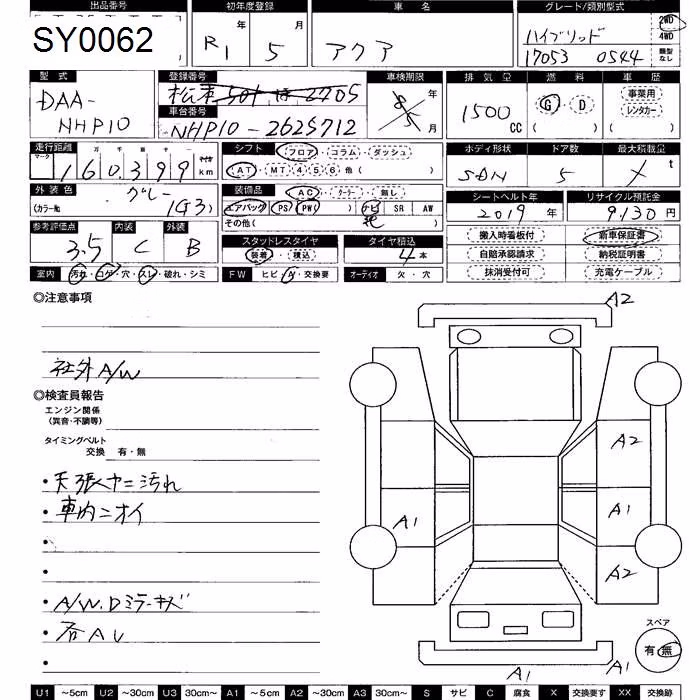 出品番号 初年度登録 車名 グレード/類別型式
SY0062 R1 年 5 月 アクア ハイブリッド 17053 0544 2WD 4WD 類型なし
型式 登録番号 車検期限 排気量 燃料 車歴
DAA-NHP10 松本 501 2705 8 年 5 月 1500 CC G・D ( ) 事業用 レンタカー ( )
車台番号
NHP10-2625712
走行距離 シフト フロア・コラム・ダッシュ ボディ形状 ドア数 最大積載量
マーク 十万 万 千 百 十 一
160,399 km AT・MT 4 5 6 他 ( ) SDN 5 X t
外装色 装備品 AC・クーラー・無し シートベルト年 リサイクル預託金
グレー
(カラーNo. 1G3) エアバッグ PS PW ( ) ナビ SR AW 2019 年 9,130 円
その他 (
参考評価点 内装 外装 スタッドレスタイヤ タイヤ積込 搬入時看板付 新車保証書
3.5 C B 装着・積込 4本 自賠承認請求 納税証明書
室内 汚れ・コゲ・穴・スレ・破れ・シミ FW ヒビ・ ・交換要 オーディオ 欠・穴 抹消受付可 充電ケーブル
◎注意事項
社外A/W
◎検査員報告
エンジン関係
(異音・不調等)
タイミングベルト
交換 有・無
・天張ヤニ汚れ
・車内ニオイ
・
・
・A/W.Dミラーキズ
・各AU
・
A2
A2
A1
A1
A2
A1
A1
スペア
有・無
U1 ～5cm U2 ～30cm U3 30cm～ A1 ～5cm A2 ～30cm A3 30cm～ S サビ C 腐食 X 交換要す XX 交換跡